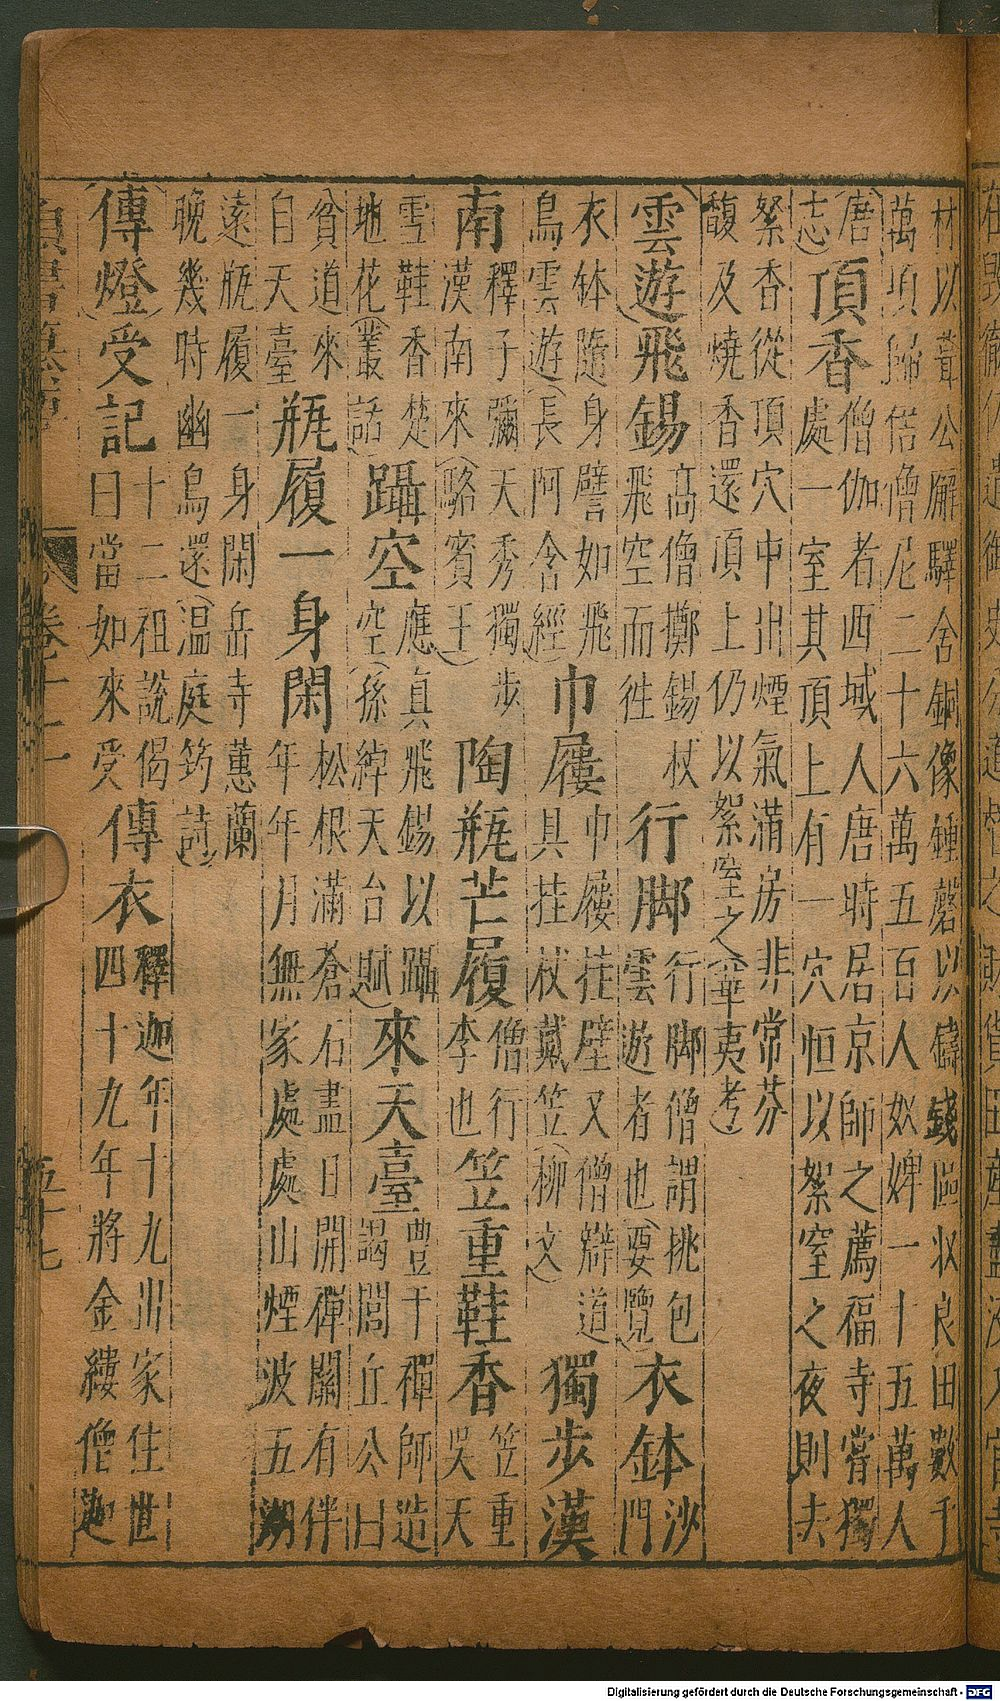 材以葺公廨驛舍銅像鍾磬以鑄錢區収良田數千
萬頃歸俗僧尼二十六萬五百人奴婢一十五萬人
唐志 頂香 僧伽者西域人唐時居京師之薦福寺嘗獨
處一室其頂上有一穴恒以絮窒之夜則去
絮香從頂穴中出煙氣滿房非常芬
馥及燒香還頂上仍以絮窒之(華夷考)
雲遊飛錫 高僧擲錫杖
飛空而徃 行脚 行脚僧謂挑包
雲遊者也(要覽) 衣鉢 沙
門
衣鉢隨身譬如飛
鳥雲遊(長阿含經) 巾屨 巾屨挂壁又僧辯道
具挂杖戴笠(柳文) 獨步漢
南 釋子彌天秀獨步
漢南來(駱賓王) 陶瓶芒履 僧行
李也 笠重鞋香 笠重
吳天
雪鞋香楚
地花(叢話) 躡空 應真飛錫以躡
空(孫綽天台賦) 來天臺 豊干禪師造
謁閭丘公曰
貧道來
自天臺 瓶履一身閑 松根滿蒼石盡日開禪關有伴
年年月無家處處山煙波五湖
遠瓶履一身閑岳寺蕙蘭
晚幾時幽鳥還(温庭筠詩)
傳燈受記 十二祖說偈
曰當如來受 傳衣 釋迦年十九出家住世
四十九年將金縷僧迦
卷十二
五十七
Digitalisierung gefördert durch die Deutsche Forschungsgemeinschaft - DFG